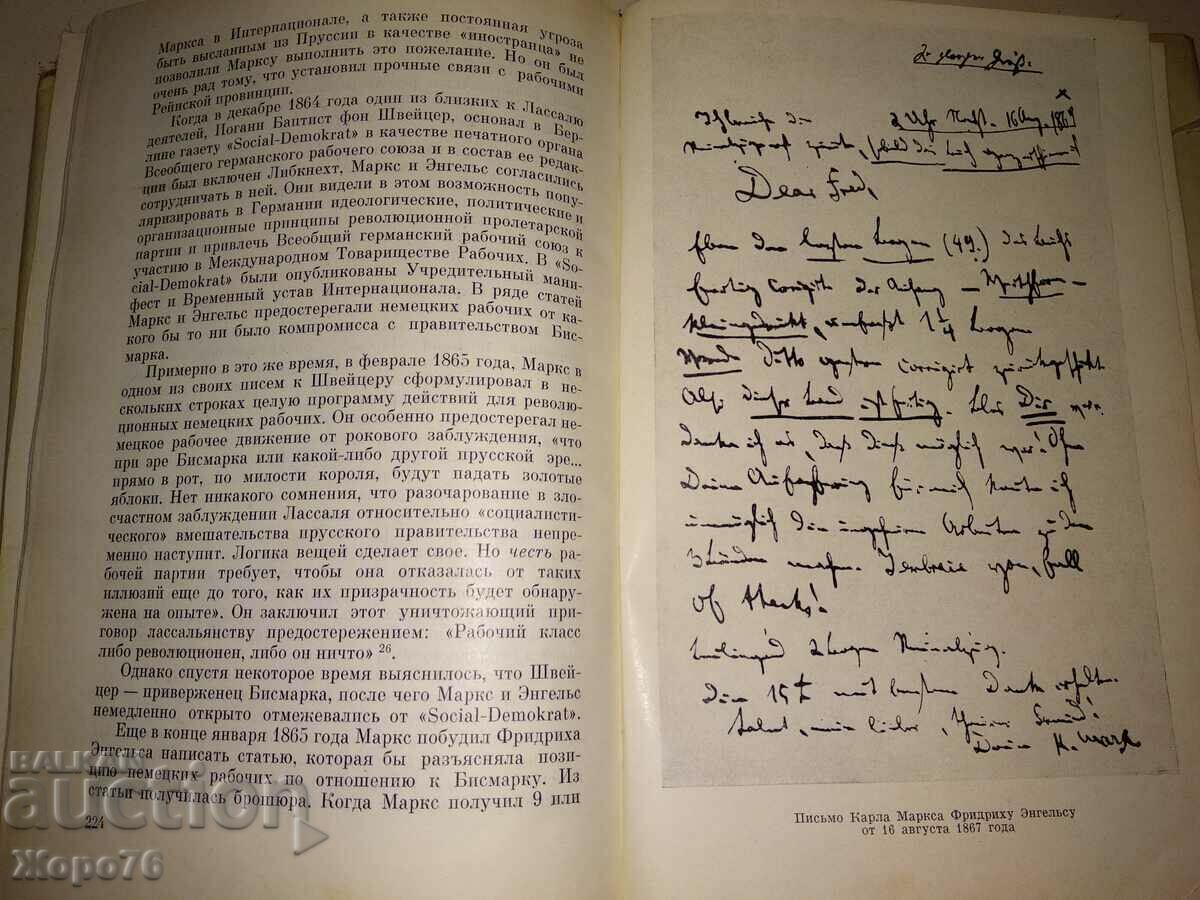 Маркса в Интернационале, а также постоянная угроза
быть высланным из Пруссии в качестве «иностранца» не
позволили Марксу выполнить это пожелание. Но он был
очень рад тому, что установил прочные связи с рабочими
Рейнской провинции.
Когда в декабре 1864 года один из близких к Лассалю
деятелей, Иоганн Баптист фон Швейцер, основал в Бер-
лине газету «Social-Demokrat» в качестве печатного органа
Всеобщего германского рабочего союза и в состав ее редак-
ции был включен Либкнехт, Маркс и Энгельс согласились
сотрудничать в ней. Они видели в этом возможность попу-
ляризировать в Германии идеологические, политические и
организационные принципы революционной пролетарской
партии и привлечь Всеобщий германский рабочий союз к
участию в Международном Товариществе Рабочих. В «So-
cial-Demokrat» были опубликованы Учредительный мани-
фест и Временный устав Интернационала. В ряде статей
Маркс и Энгельс предостерегали немецких рабочих от ка-
кого бы то ни было компромисса с правительством Бис-
марка.
Примерно в это же время, в феврале 1865 года, Маркс в
одном из своих писем к Швейцеру сформулировал в не-
скольких строках целую программу действий для револю-
ционных немецких рабочих. Он особенно предостерегал не-
мецкое рабочее движение от рокового заблуждения, «что
при эре Бисмарка или какой-либо другой прусской эре...
прямо в рот, по милости короля, будут падать золотые
яблоки. Нет никакого сомнения, что разочарование в зло-
счастном заблуждении Лассаля относительно «социалисти-
ческого» вмешательства прусского правительства непре-
менно наступит. Логика вещей сделает свое. Но честь ра-
бочей партии требует, чтобы она отказалась от таких
иллюзий еще до того, как их призрачность будет обнару-
жена на опыте». Он заключил этот уничтожающий при-
говор лассальянству предостережением: «Рабочий класс
либо революционен, либо он ничто» 26.
Однако спустя некоторое время выяснилось, что Швей-
цер — приверженец Бисмарка, после чего Маркс и Энгельс
немедленно открыто отмежевались от «Social-Demokrat».
Еще в конце января 1865 года Маркс побудил Фридриха
Энгельса написать статью, которая бы разъясняла пози-
цию немецких рабочих по отношению к Бисмарку. Из
статьи получилась брошюра. Когда Маркс получил 9 или
224
BALKAN
auction
Жоро76
2 Uhr Nacht. 16 Aug. 1867
Dear Fred,
Eben den letzten Bogen (49.) des Buchs
fertig corrigirt. Der Anhang — Werthform —
kleingedruckt, umfaßt 1 1/4 Bogen
ditto gestern corrigirt zurückgeschickt
Also dieser Band ist fertig. Blos Dir
danke ich es, daß dieß möglich war! Ohne
Deine Aufopferung für mich konnte ich
unmöglich die ungeheuren Arbeiten zu den
3 Bänden machen. I embrace you, full
of thanks!
Beiliegend 2 Bogen Reinabzug.
Die 15 £ mit bestem Dank erhalten.
Salut, mein lieber, theurer Freund!
Dein K. Marx
Письмо Карла Маркса Фридриху Энгельсу
от 16 августа 1867 года